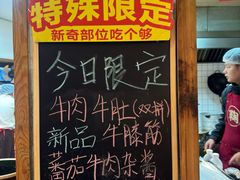 特殊限定
新奇部位吃个够
今日限定
牛肉 牛肚(双拼)
新品 牛膝筋
蕃茄牛肉杂酱